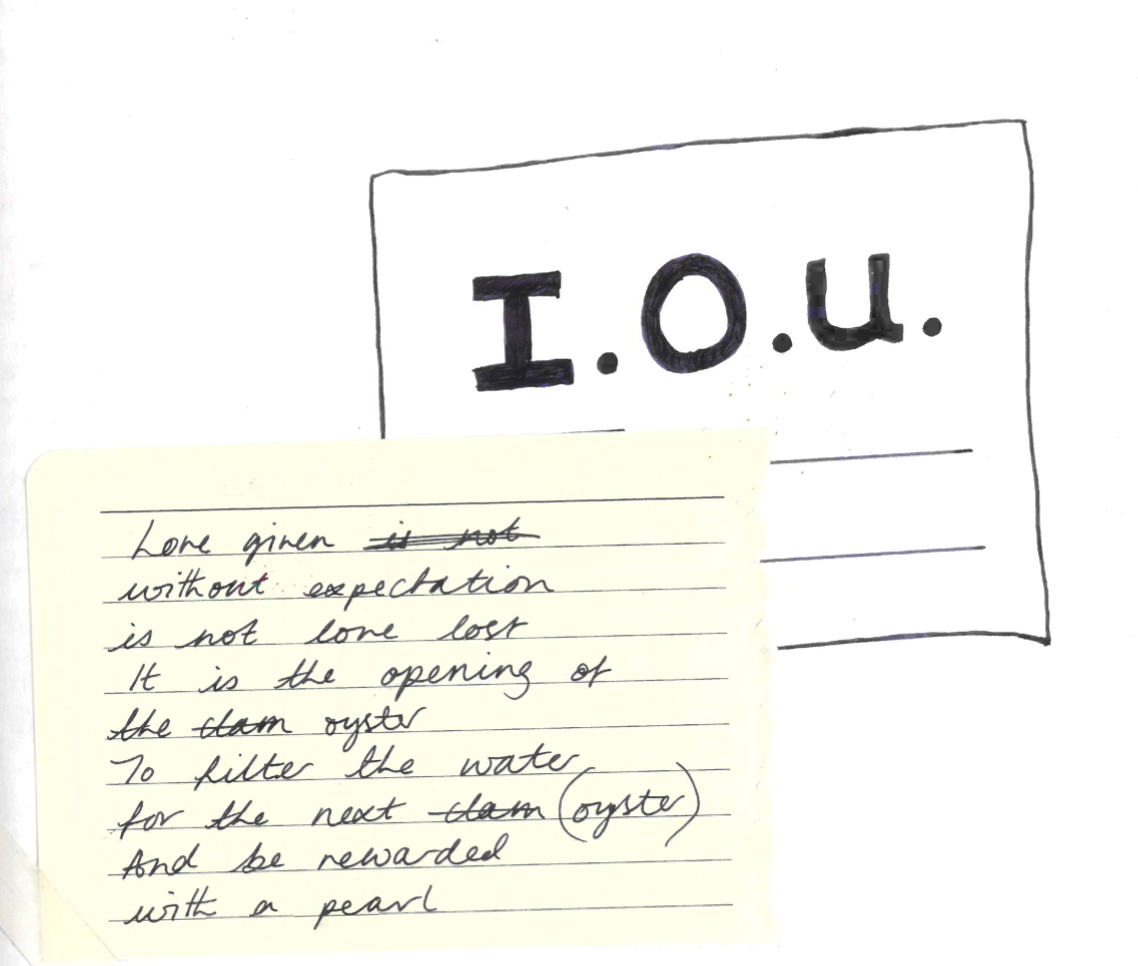 I.O.U.
Love given is not
without expectation
is not love lost
It is the opening of
the clam oyster
To filter the water
for the next clam (oyster)
And be rewarded
with a pearl